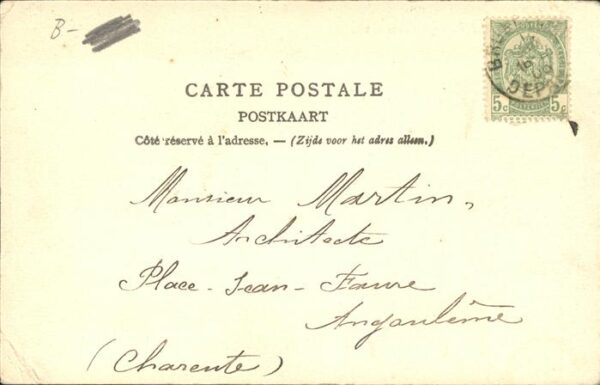 B-
5c 5c
DEPA
CARTE POSTALE
POSTKAART
Côté réservé à l'adresse. — (Zijde voor het adres alleen.)
Monsieur Martin,
Architecte
Place-Jean-Faure
Angoulême
(Charente)